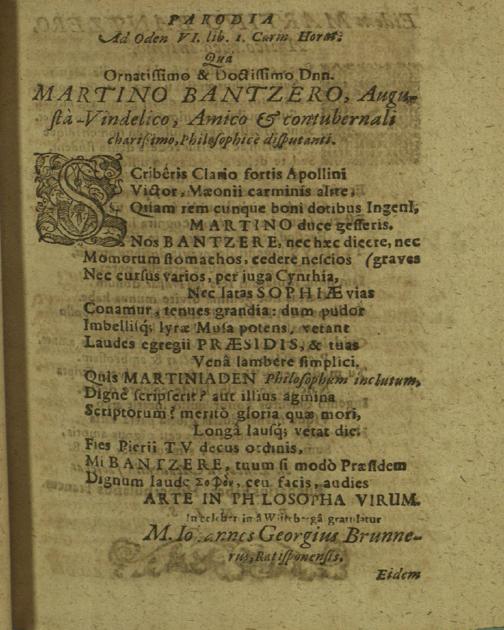 PARODIA
Ad Oden VI. lib. 1. Carm. Horat:
Qua
Ornatissimo & Doctissimo Dnn.
MARTINO BANTZERO, Augu-
stâ-Vindelico, Amico & contubernali
charissimo, Philosophicè disputanti.
SCribêris Clario fortis Apollini
Victor, Mæonii carminis alite,
Quam rem cunque boni dotibus IngenI,
MARTINO duce gesseris.
Nos BANTZERE, nec hæc dicere, nec
Momorum stomachos, cedere nescios (graves
Nec cursus varios, per juga Cynthia,
Nec latas SOPHIÆ vias
Conamur, tenues grandia: dum pudor
Imbellisq; lyræ Musa potens, vetant
Laudes egregii PRÆSIDIS, & tuas
Venâ lambere simplici.
Quis MARTINIADEN Philosophum inclutum,
Dignè scripserit? aut illius agmina
Scriptorum? meritò gloria quæ mori,
Longâ lausq; vetat die.
Fies Pierii TV decus ordinis,
Mi BANTZERE, tuum si modò Præsidem
Dignum laude Σοφὸν, ceu facis, audies
ARTE IN PHILOSOPHA VIRUM.
In celeber Wittebergâ gratulatur
M. Johannes Georgius Brunne-
rus, Ratisponensis.
Eidem